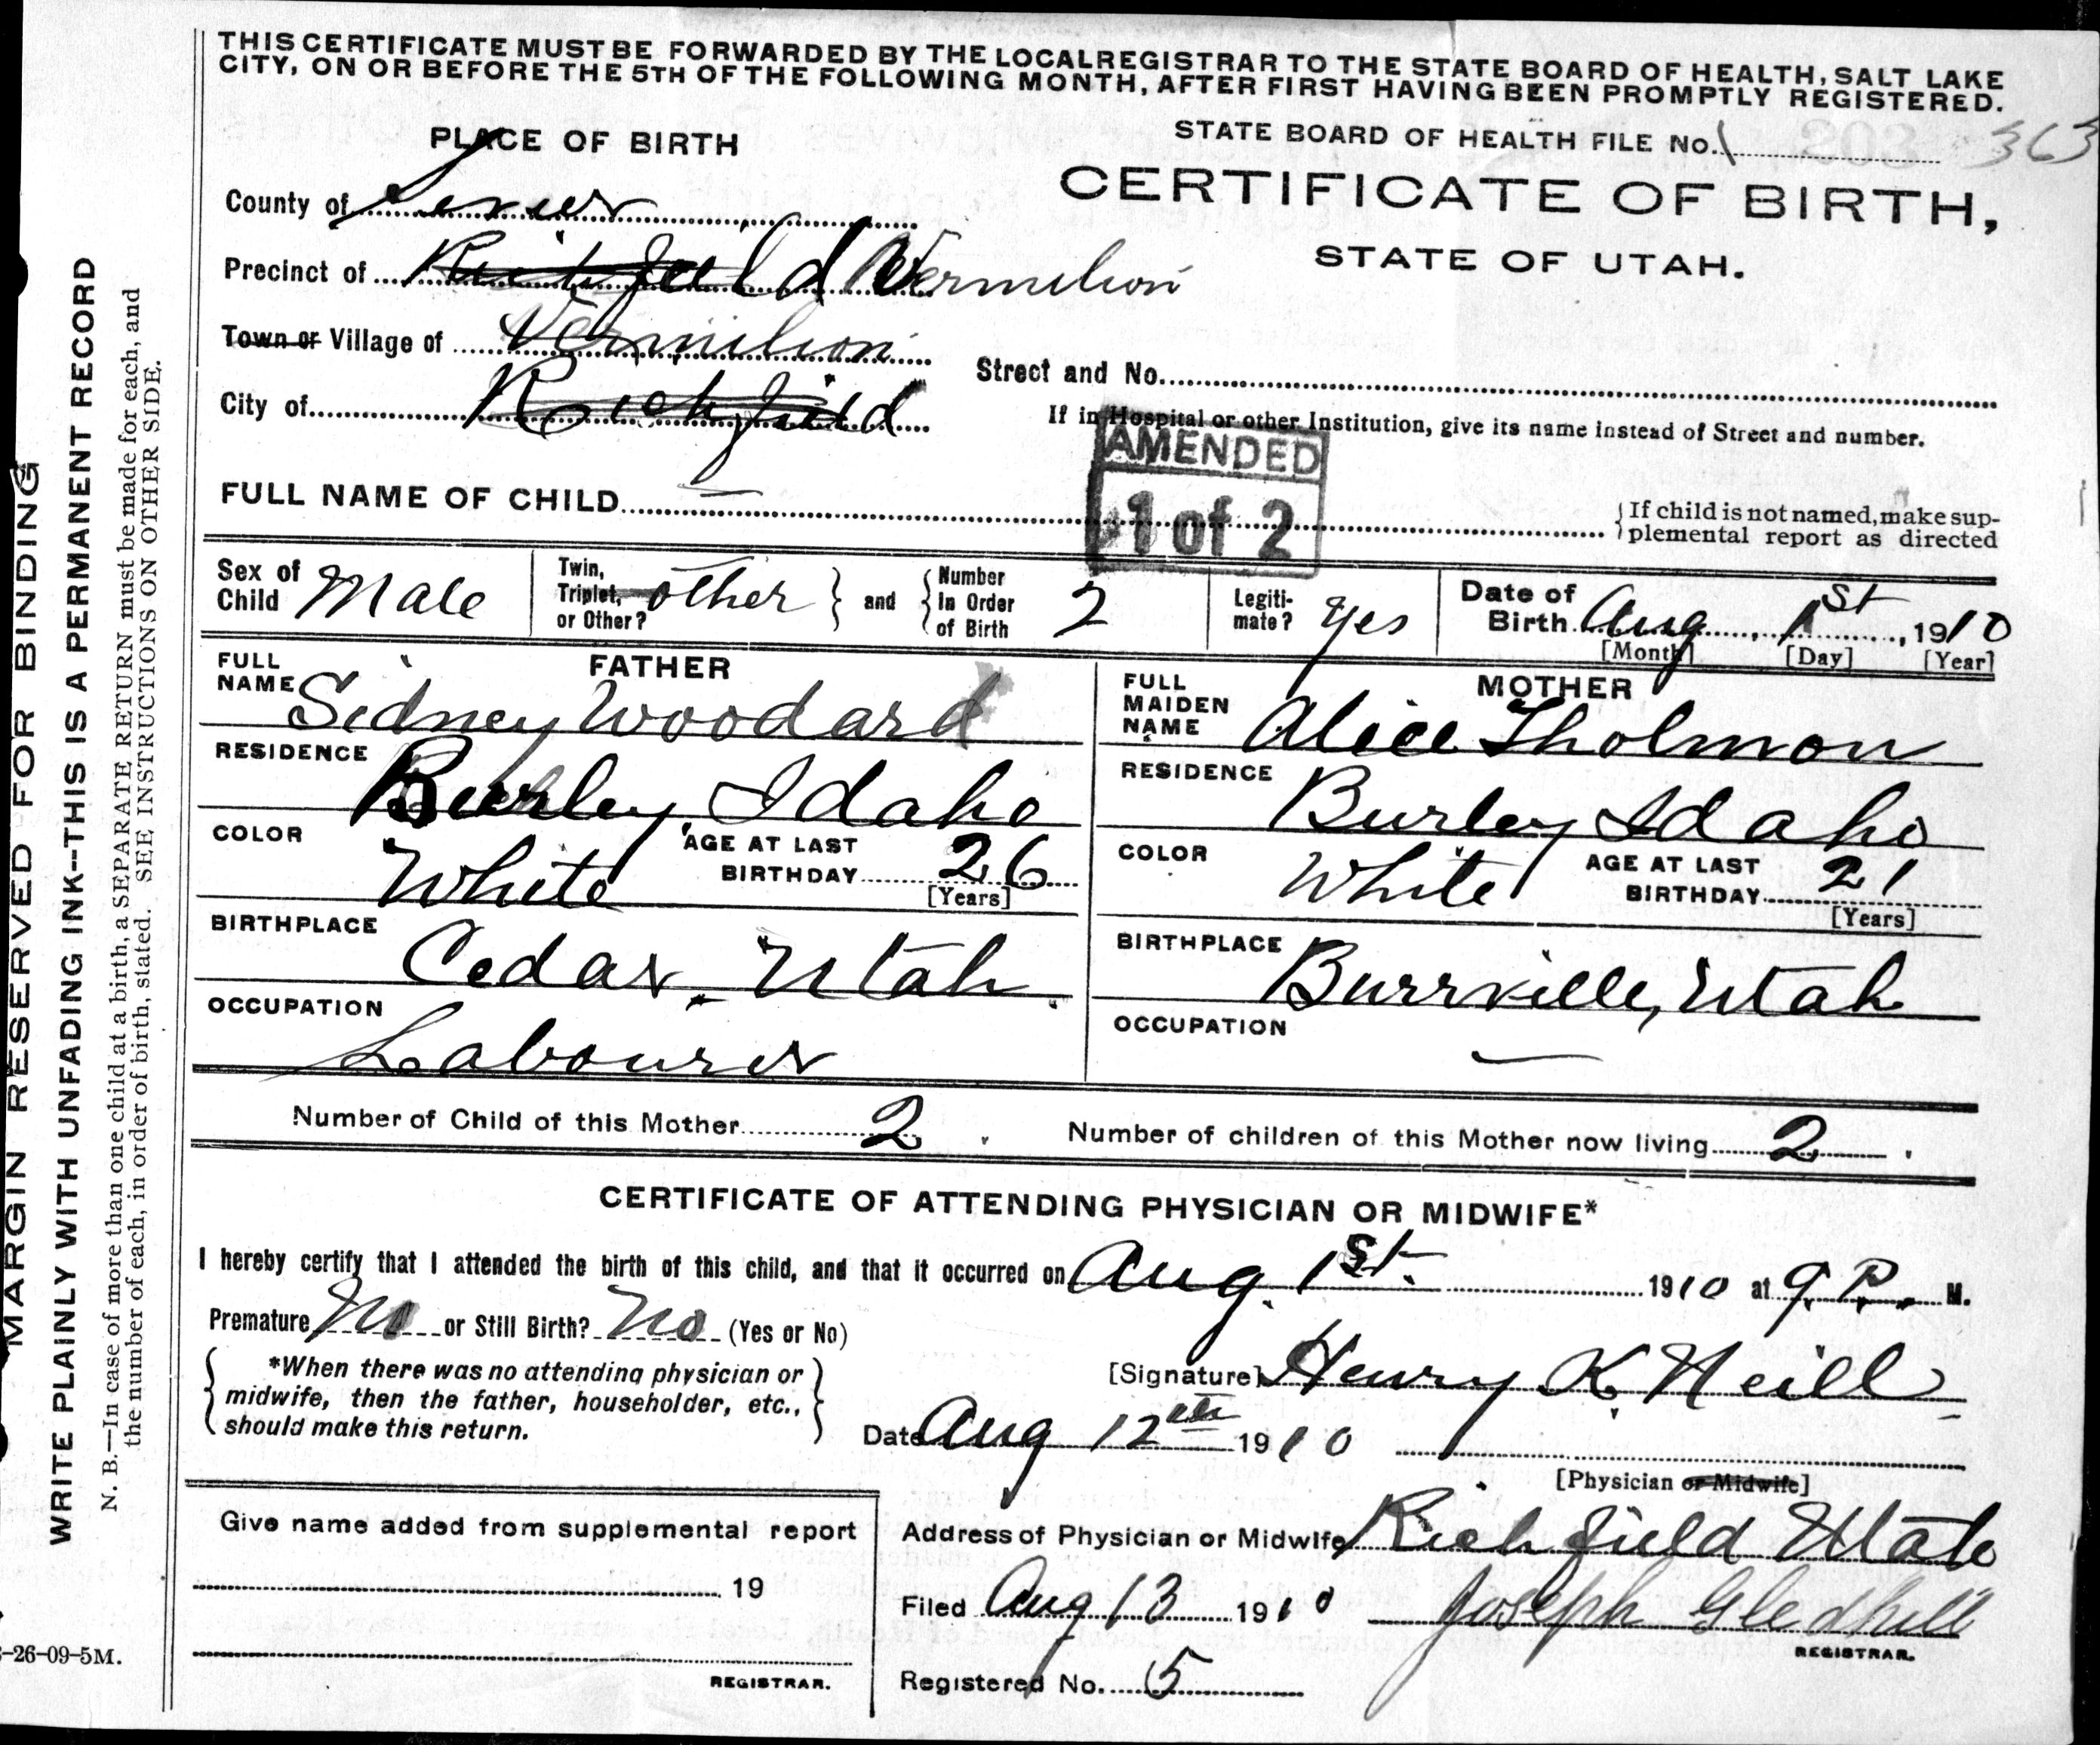 THIS CERTIFICATE MUST BE FORWARDED BY THE LOCAL REGISTRAR TO THE STATE BOARD OF HEALTH, SALT LAKE
CITY, ON OR BEFORE THE 5TH OF THE FOLLOWING MONTH, AFTER FIRST HAVING BEEN PROMPTLY REGISTERED.
PLACE OF BIRTH
STATE BOARD OF HEALTH FILE No. 363
County of Sevier
CERTIFICATE OF BIRTH,
Precinct of Richfield Vermilion
STATE OF UTAH.
Town or Village of Vermilion
Street and No.
City of Richfield
If in Hospital or other Institution, give its name instead of Street and number.
AMENDED
1 of 2
FULL NAME OF CHILD
If child is not named, make sup-
plemental report as directed
Sex of Child Male
Twin, Triplet, or Other? other and Number In Order of Birth 2
Legiti-mate? Yes
Date of Birth Aug 1st, 1910
[Month] [Day] [Year]
FATHER
FULL NAME Sidney Woodard
RESIDENCE Burley, Idaho
COLOR White AGE AT LAST BIRTHDAY 26
[Years]
BIRTHPLACE Cedar, Utah
OCCUPATION Labourer
MOTHER
FULL MAIDEN NAME Alice Tholmon
RESIDENCE Burley Idaho
COLOR White AGE AT LAST BIRTHDAY 21
[Years]
BIRTHPLACE Burrville, Utah
OCCUPATION —
Number of Child of this Mother 2 Number of children of this Mother now living 2.
CERTIFICATE OF ATTENDING PHYSICIAN OR MIDWIFE*
I hereby certify that I attended the birth of this child, and that it occurred on Aug. 1st. 1910 at 9. P. M.
Premature No or Still Birth? No (Yes or No)
*When there was no attending physician or
midwife, then the father, householder, etc.,
should make this return.
[Signature] Henry K. Neill
Date Aug 12th 1910
[Physician or Midwife]
Give name added from supplemental report
19
REGISTRAR.
Address of Physician or Midwife Richfield Utah
Filed Aug 13 1910 Joseph Gledhill
REGISTRAR.
Registered No. 5
MARGIN RESERVED FOR BINDING
WRITE PLAINLY WITH UNFADING INK--THIS IS A PERMANENT RECORD
N. B.—In case of more than one child at a birth, a SEPARATE RETURN must be made for each, and
the number of each, in order of birth, stated. SEE INSTRUCTIONS ON OTHER SIDE.
-26-09-5M.